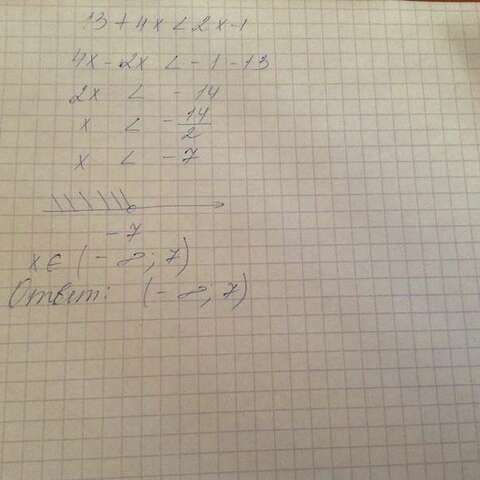 13 + 4x < 2x - 1
4x - 2x < - 1 - 13
2x < - 14
x < - 14/2
x < - 7
- 7
x ∈ (- ∞; 7)
Ответ: (- ∞; 7)